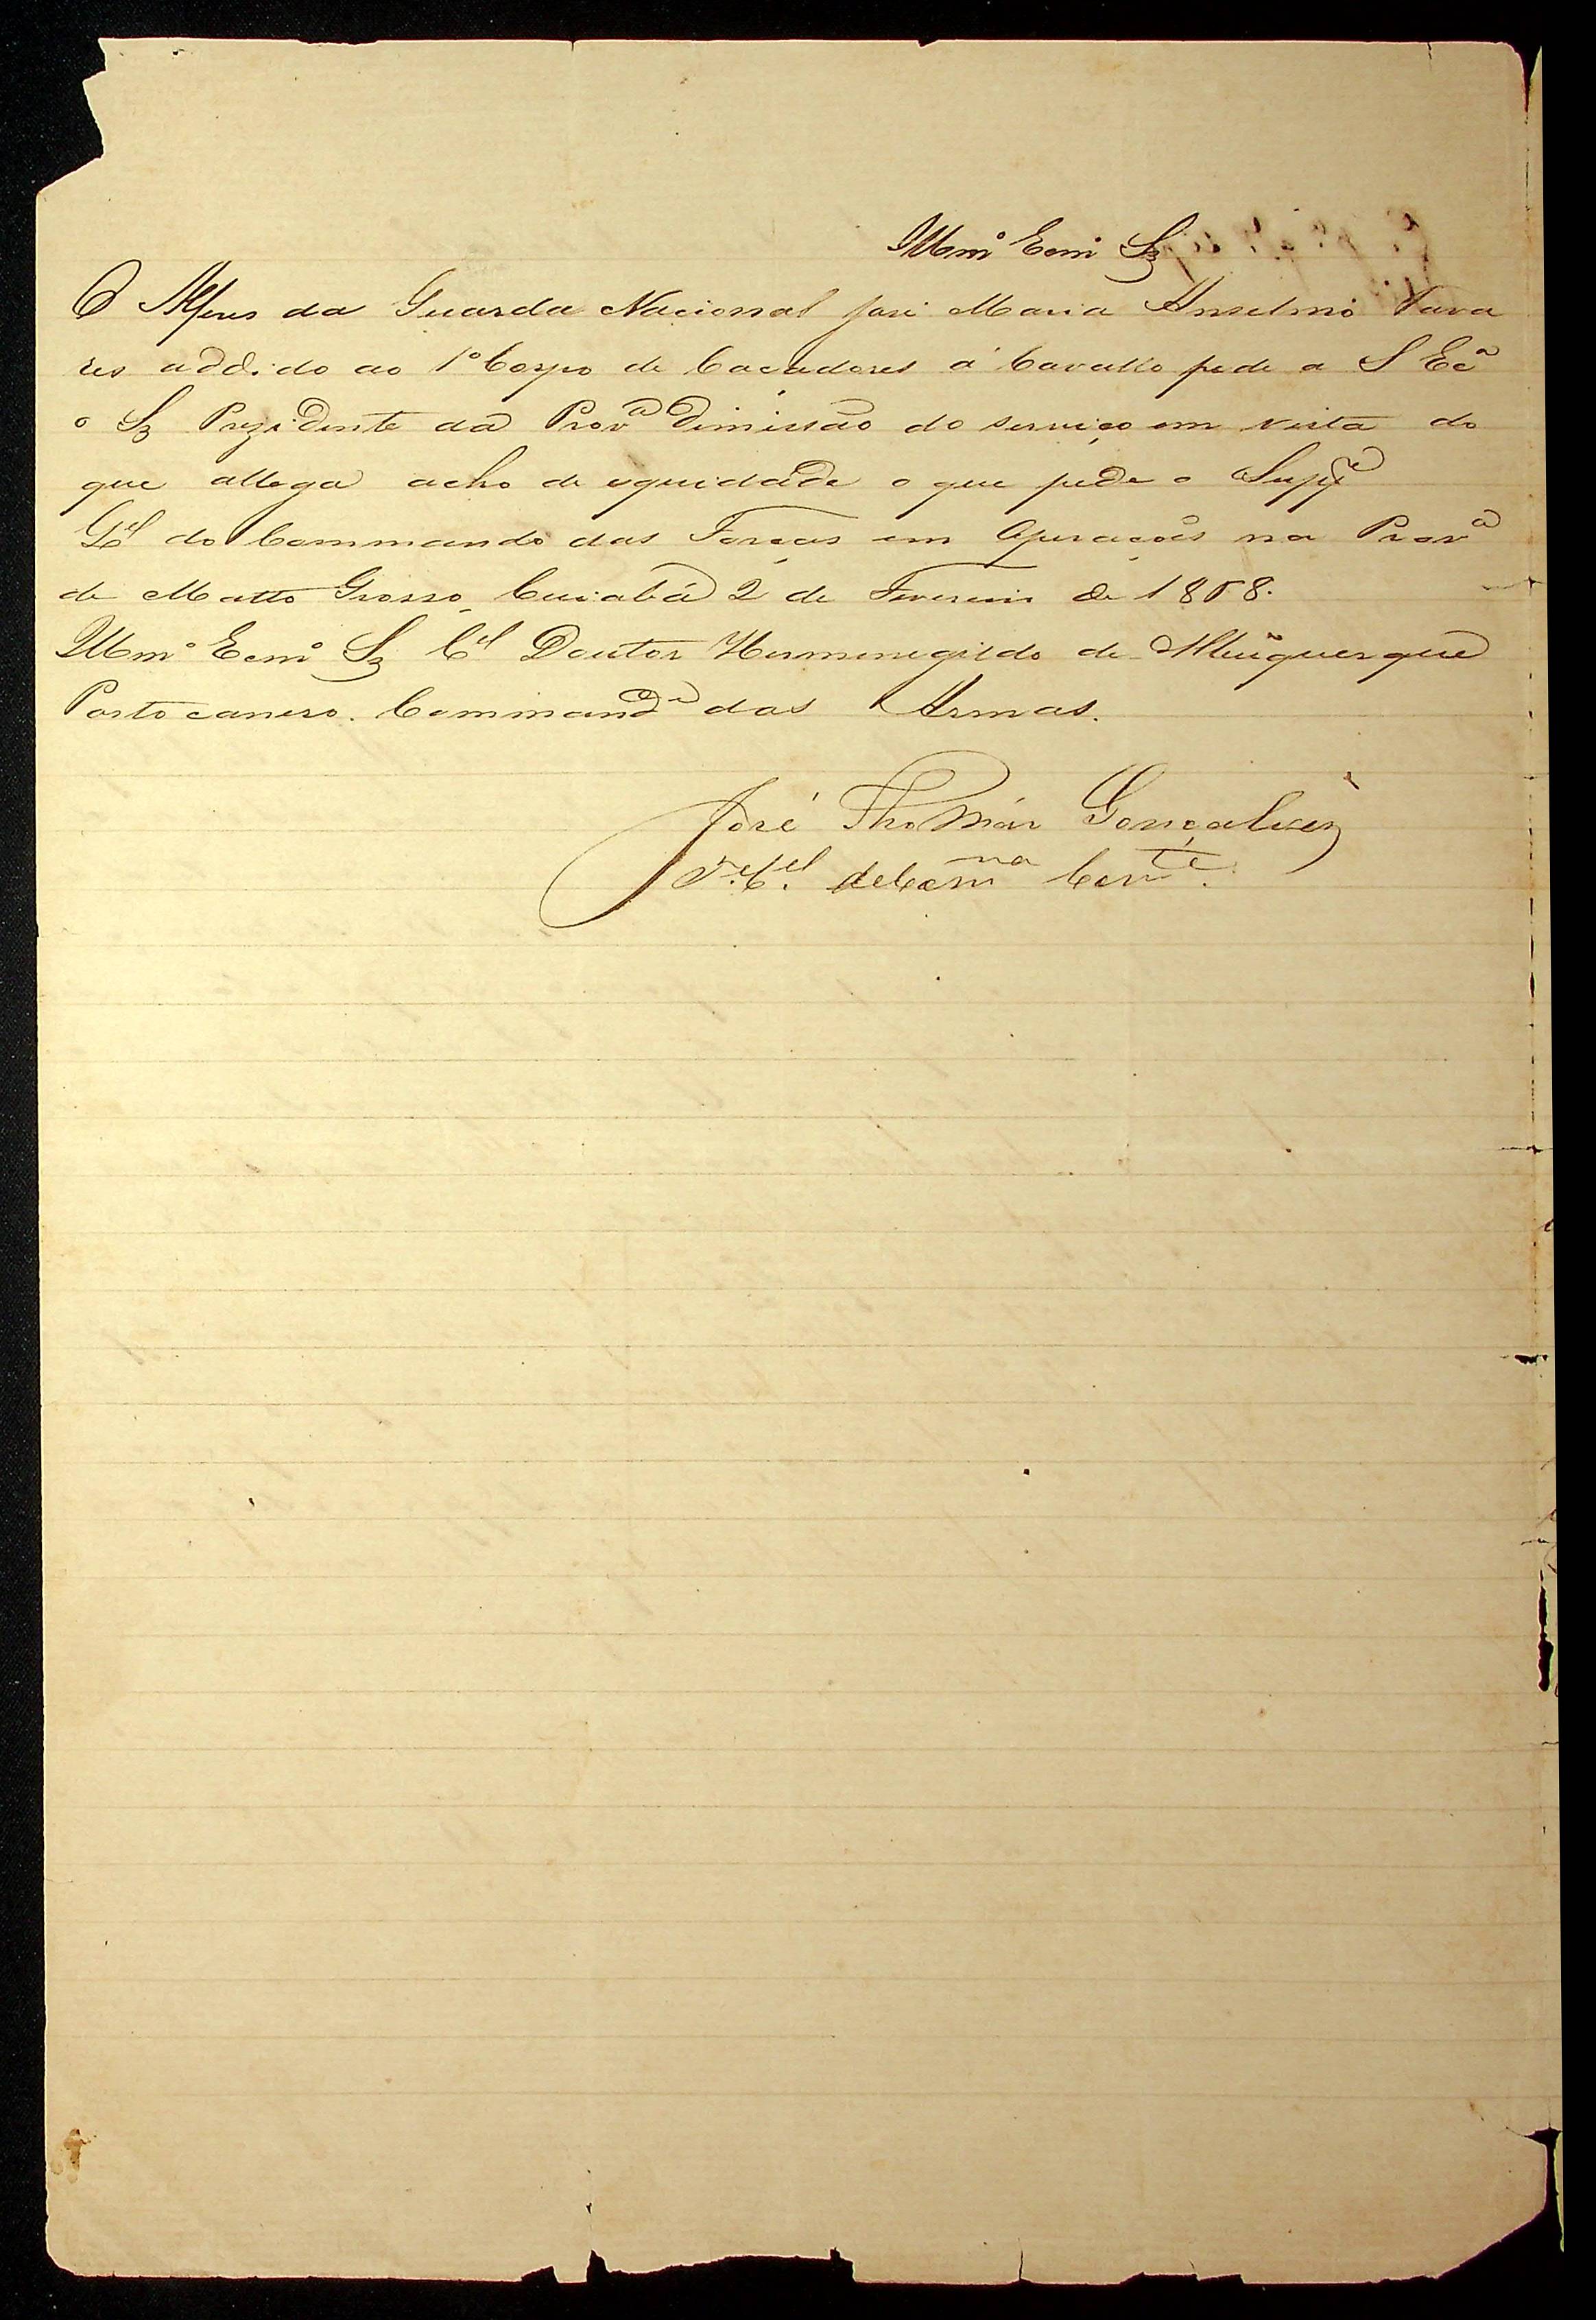 Illmº Exmº Sr
O Alferes da Guarda Nacional José Maria Anselmo Tava
res addido ao 1º Corpo de Caçadores á Cavallo pede a S Exª
o Sr Prezidente da Provª dimissão do serviço em vista do
que allega acho de equidade o que pede o Suppe
Qel do Commando das Forças em Operações na Provª
de Matto Grosso, Cuiabá 2 de Fevereiro de 1868.
Illmº Exmº Sr Cel Doutor Hermenegildo de Albuquerque
Portocarrero. Commande das Armas.
José Thomáz Gonçalves
Te Cel de Comma Comte.